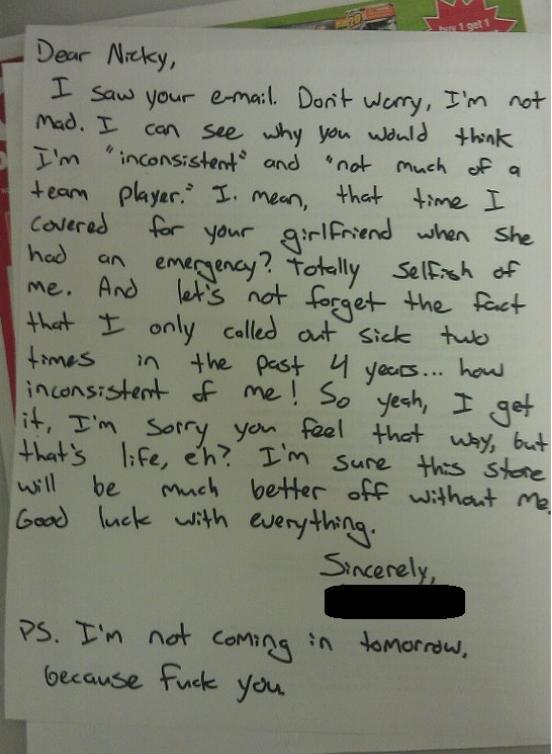 buy 1 get 1
Dear Nicky,
I saw your e-mail. Don't worry, I'm not
mad. I can see why you would think
I'm "inconsistent" and "not much of a
team player." I mean, that time I
covered for your girlfriend when she
had an emergency? Totally selfish of
me. And let's not forget the fact
that I only called out sick two
times in the past 4 years... how
inconsistent of me! So yeah, I get
it, I'm sorry you feel that way, but
that's life, eh? I'm sure this store
will be much better off without me.
Good luck with everything.
Sincerely,
PS. I'm not coming in tomorrow,
because fuck you.